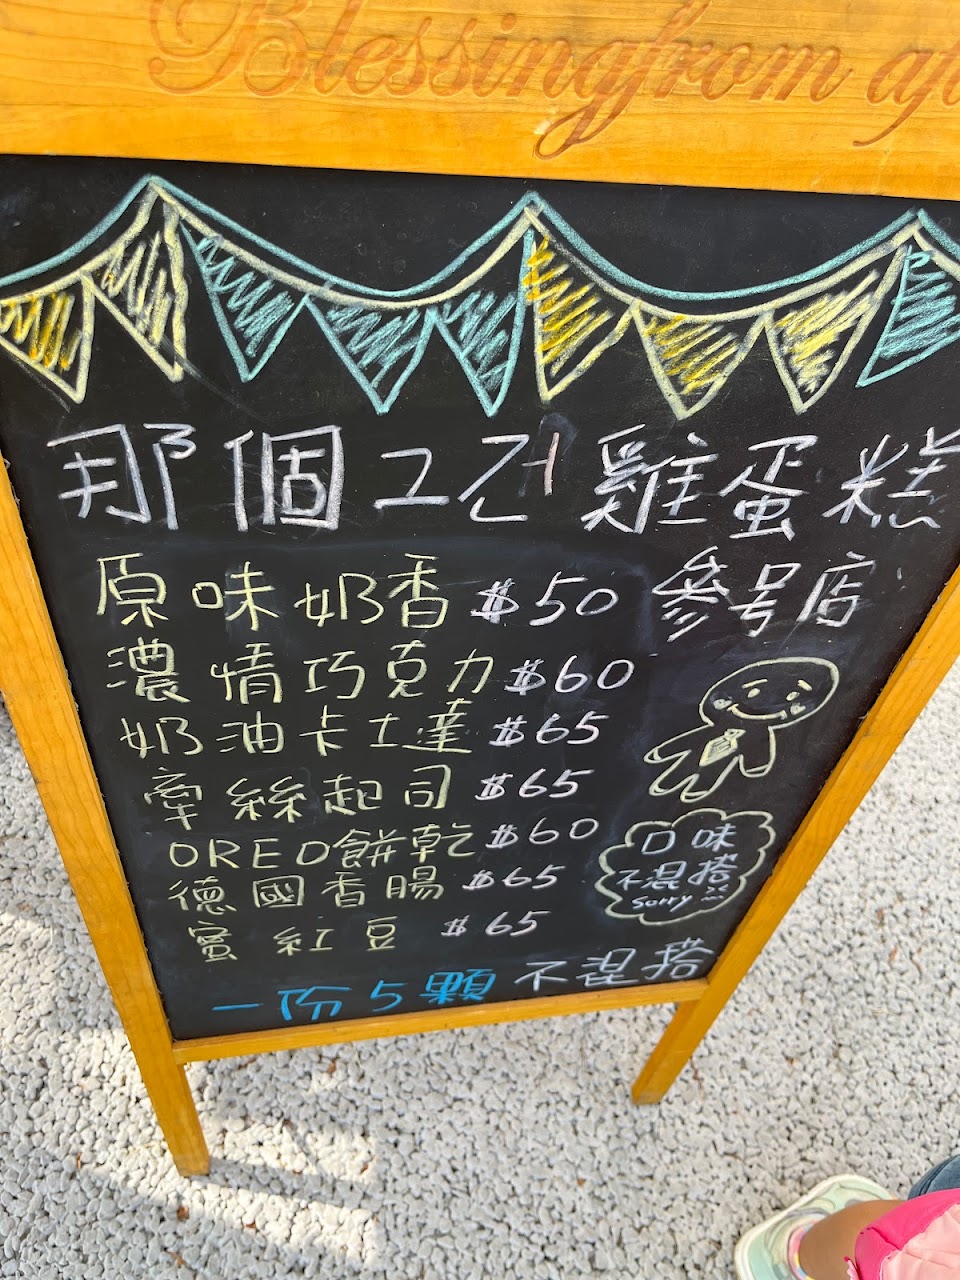 Blessingfrom
那個그건雞蛋糕
參号店
原味奶香 $50
濃情巧克力 $60
奶油卡士達 $65
牽絲起司 $65
OREO餅乾 $60
德國香腸 $65
蜜紅豆 $65
口味
不混搭
sorry
一份5顆 不混搭